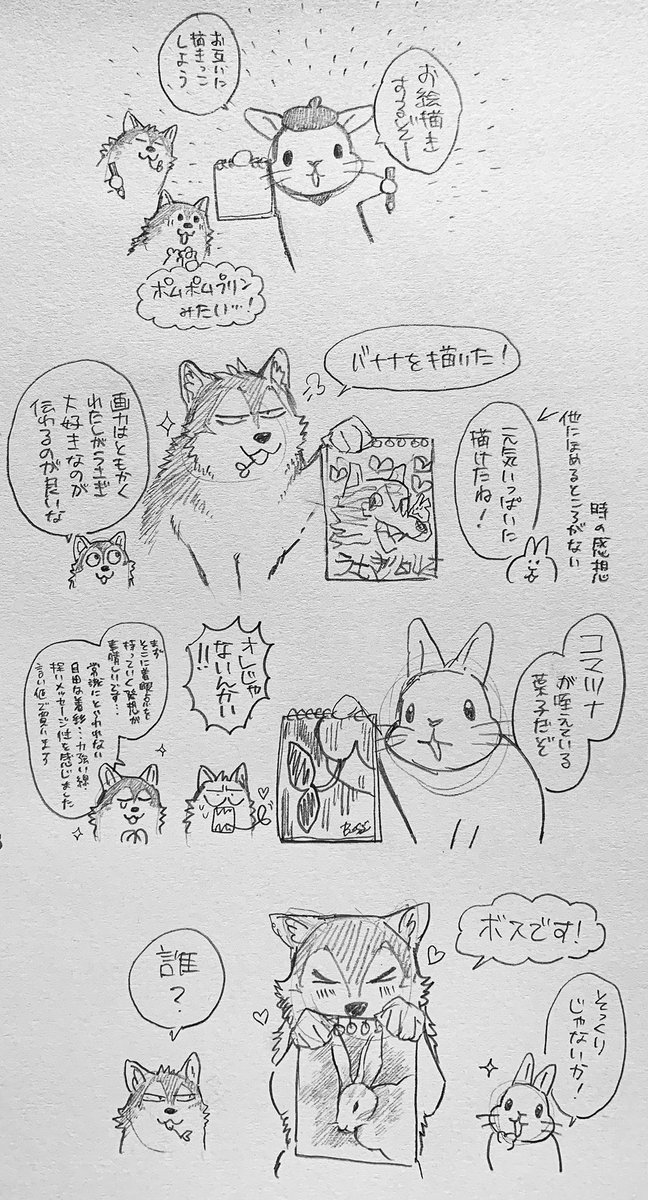 お絵描き
するぞー
お互いに
描きっこ
しよう
ポムポムプリン
みたい…!
バナナを描いた!
画力はともかく
わたしがうさぎ
大好きなのが
伝わるのが良いな
元気いっぱいに
描けたね!
他にほめるところがない
時の感想
コマツナ
が咥えている
葉子だぞ
オレじゃ
ないんかい
!!
まず
そこに着眼点を
持っていく発想が
素晴しいです…
常識にとらわれない
自由な着彩…力強い線
深いメッセージ性を感じました
言い値で買います
ボスです!
そっくり
じゃないか!
誰?